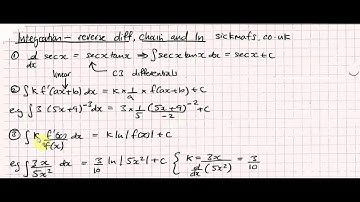 Integration – reverse diff, chain and ln sickmafs.co.uk
① d/dx sec x = sec x tan x ⇒ ∫ sec x tan x dx = sec x + C
linear C3 differentials
② ∫ K f'(ax+b) dx = K × 1/a f(ax+b) + C
eg ∫ 3 (5x+9)⁻³ dx = 3 × 1/5 (5x+9)⁻²/-2 + C
③ ∫ K f'(x)/f(x) dx = K ln |f(x)| + C
eg ∫ 3x/5x² dx = 3/10 ln |5x²| + C { K = 3x / d/dx (5x²) = 3/10